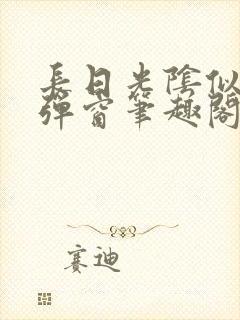 長日光陰似
彈窗筆趣閣
賽迪